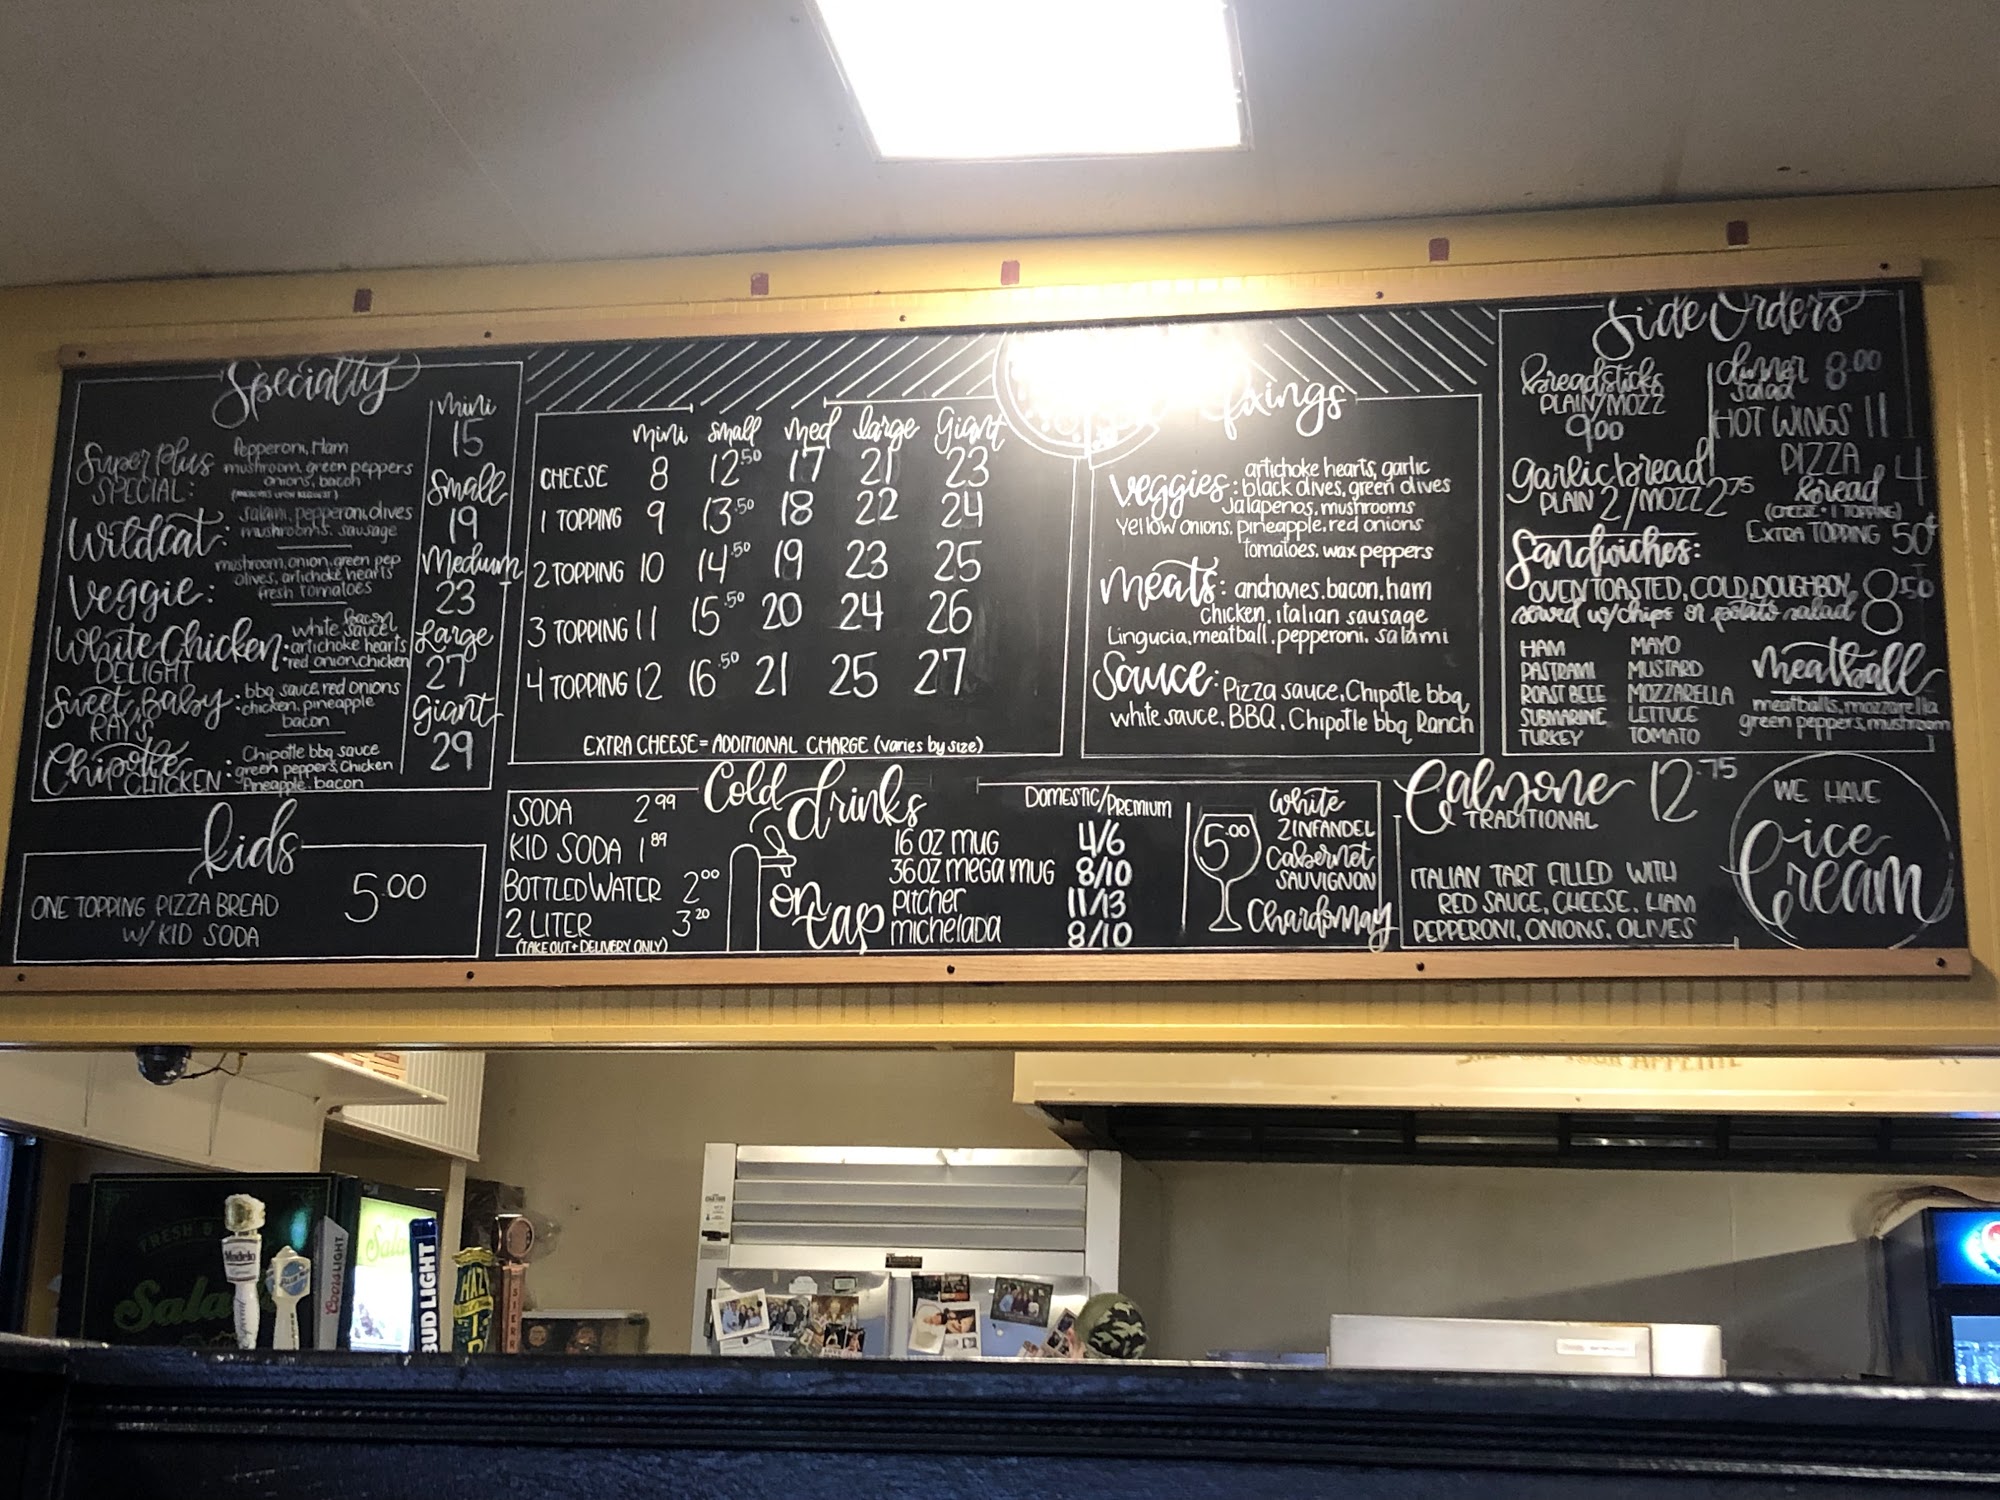 Specialty
mini
15
Small
19
Medium
23
Large
27
Giant
29
Super Plus
SPECIAL:
Pepperoni, Ham
mushroom, green peppers
onions, bacon
Wildcat:
salami, pepperoni, olives
mushrooms, sausage
Veggie:
mushroom, onion, green pep
olives, artichoke hearts
fresh tomatoes
White Chicken
DELIGHT
Bacon
white sauce
artichoke hearts
red onion, chicken
Sweet Baby
RAY'S
bbq sauce, red onions
chicken, pineapple
bacon
Chipotle
CHICKEN
Chipotle bbq sauce
green peppers, Chicken
Pineapple, bacon
kids
ONE TOPPING PIZZA BREAD
W/ KID SODA
5.00
mini small med large Giant
CHEESE 8 12.50 17 21 23
1 TOPPING 9 13.50 18 22 24
2 TOPPING 10 14.50 19 23 25
3 TOPPING 11 15.50 20 24 26
4 TOPPING 12 16.50 21 25 27
EXTRA CHEESE = ADDITIONAL CHARGE (varies by size)
fixings
veggies: artichoke hearts, garlic
black olives, green olives
Jalapenos, mushrooms
Yellow onions, pineapple, red onions
tomatoes, wax peppers
meats: anchovies, bacon, ham
chicken, italian sausage
Lingucia, meatball, pepperoni, salami
Sauce: Pizza sauce, Chipotle bbq
white sauce, BBQ, Chipotle bbq Ranch
Side Orders
breadsticks
PLAIN/MOZZ
9.00
dinner
salad 8.00
HOT WINGS 11
PIZZA
bread 4
(CHEESE + 1 TOPPING)
EXTRA TOPPING 50¢
garlic bread
PLAIN 2/MOZZ 2.75
Sandwiches:
OVEN TOASTED, COLD, DOUGHBOY
served w/chips or potato salad
8.50
HAM
PASTRAMI
ROAST BEEF
SUBMARINE
TURKEY
MAYO
MUSTARD
MOZZARELLA
LETTUCE
TOMATO
meatball
meatballs, mozzarella
green peppers, mushroom
Cold drinks
SODA 2.99
KID SODA 1.89
BOTTLED WATER 2.00
2 LITER 3.20
(TAKE OUT + DELIVERY ONLY)
on tap
DOMESTIC/PREMIUM
16 OZ MUG 4/6
36 OZ MEGA MUG 8/10
pitcher 11/13
michelada 8/10
5.00
White
ZINFANDEL
Cabernet
SAUVIGNON
Chardonnay
Calzone 12.75
TRADITIONAL
ITALIAN TART FILLED WITH
RED SAUCE, CHEESE, HAM
PEPPERONI, ONIONS, OLIVES
WE HAVE
ice
Cream
FRESH
Salad
Modelo
Especial
Coors LIGHT
BUD LIGHT
HAZY
SIERR